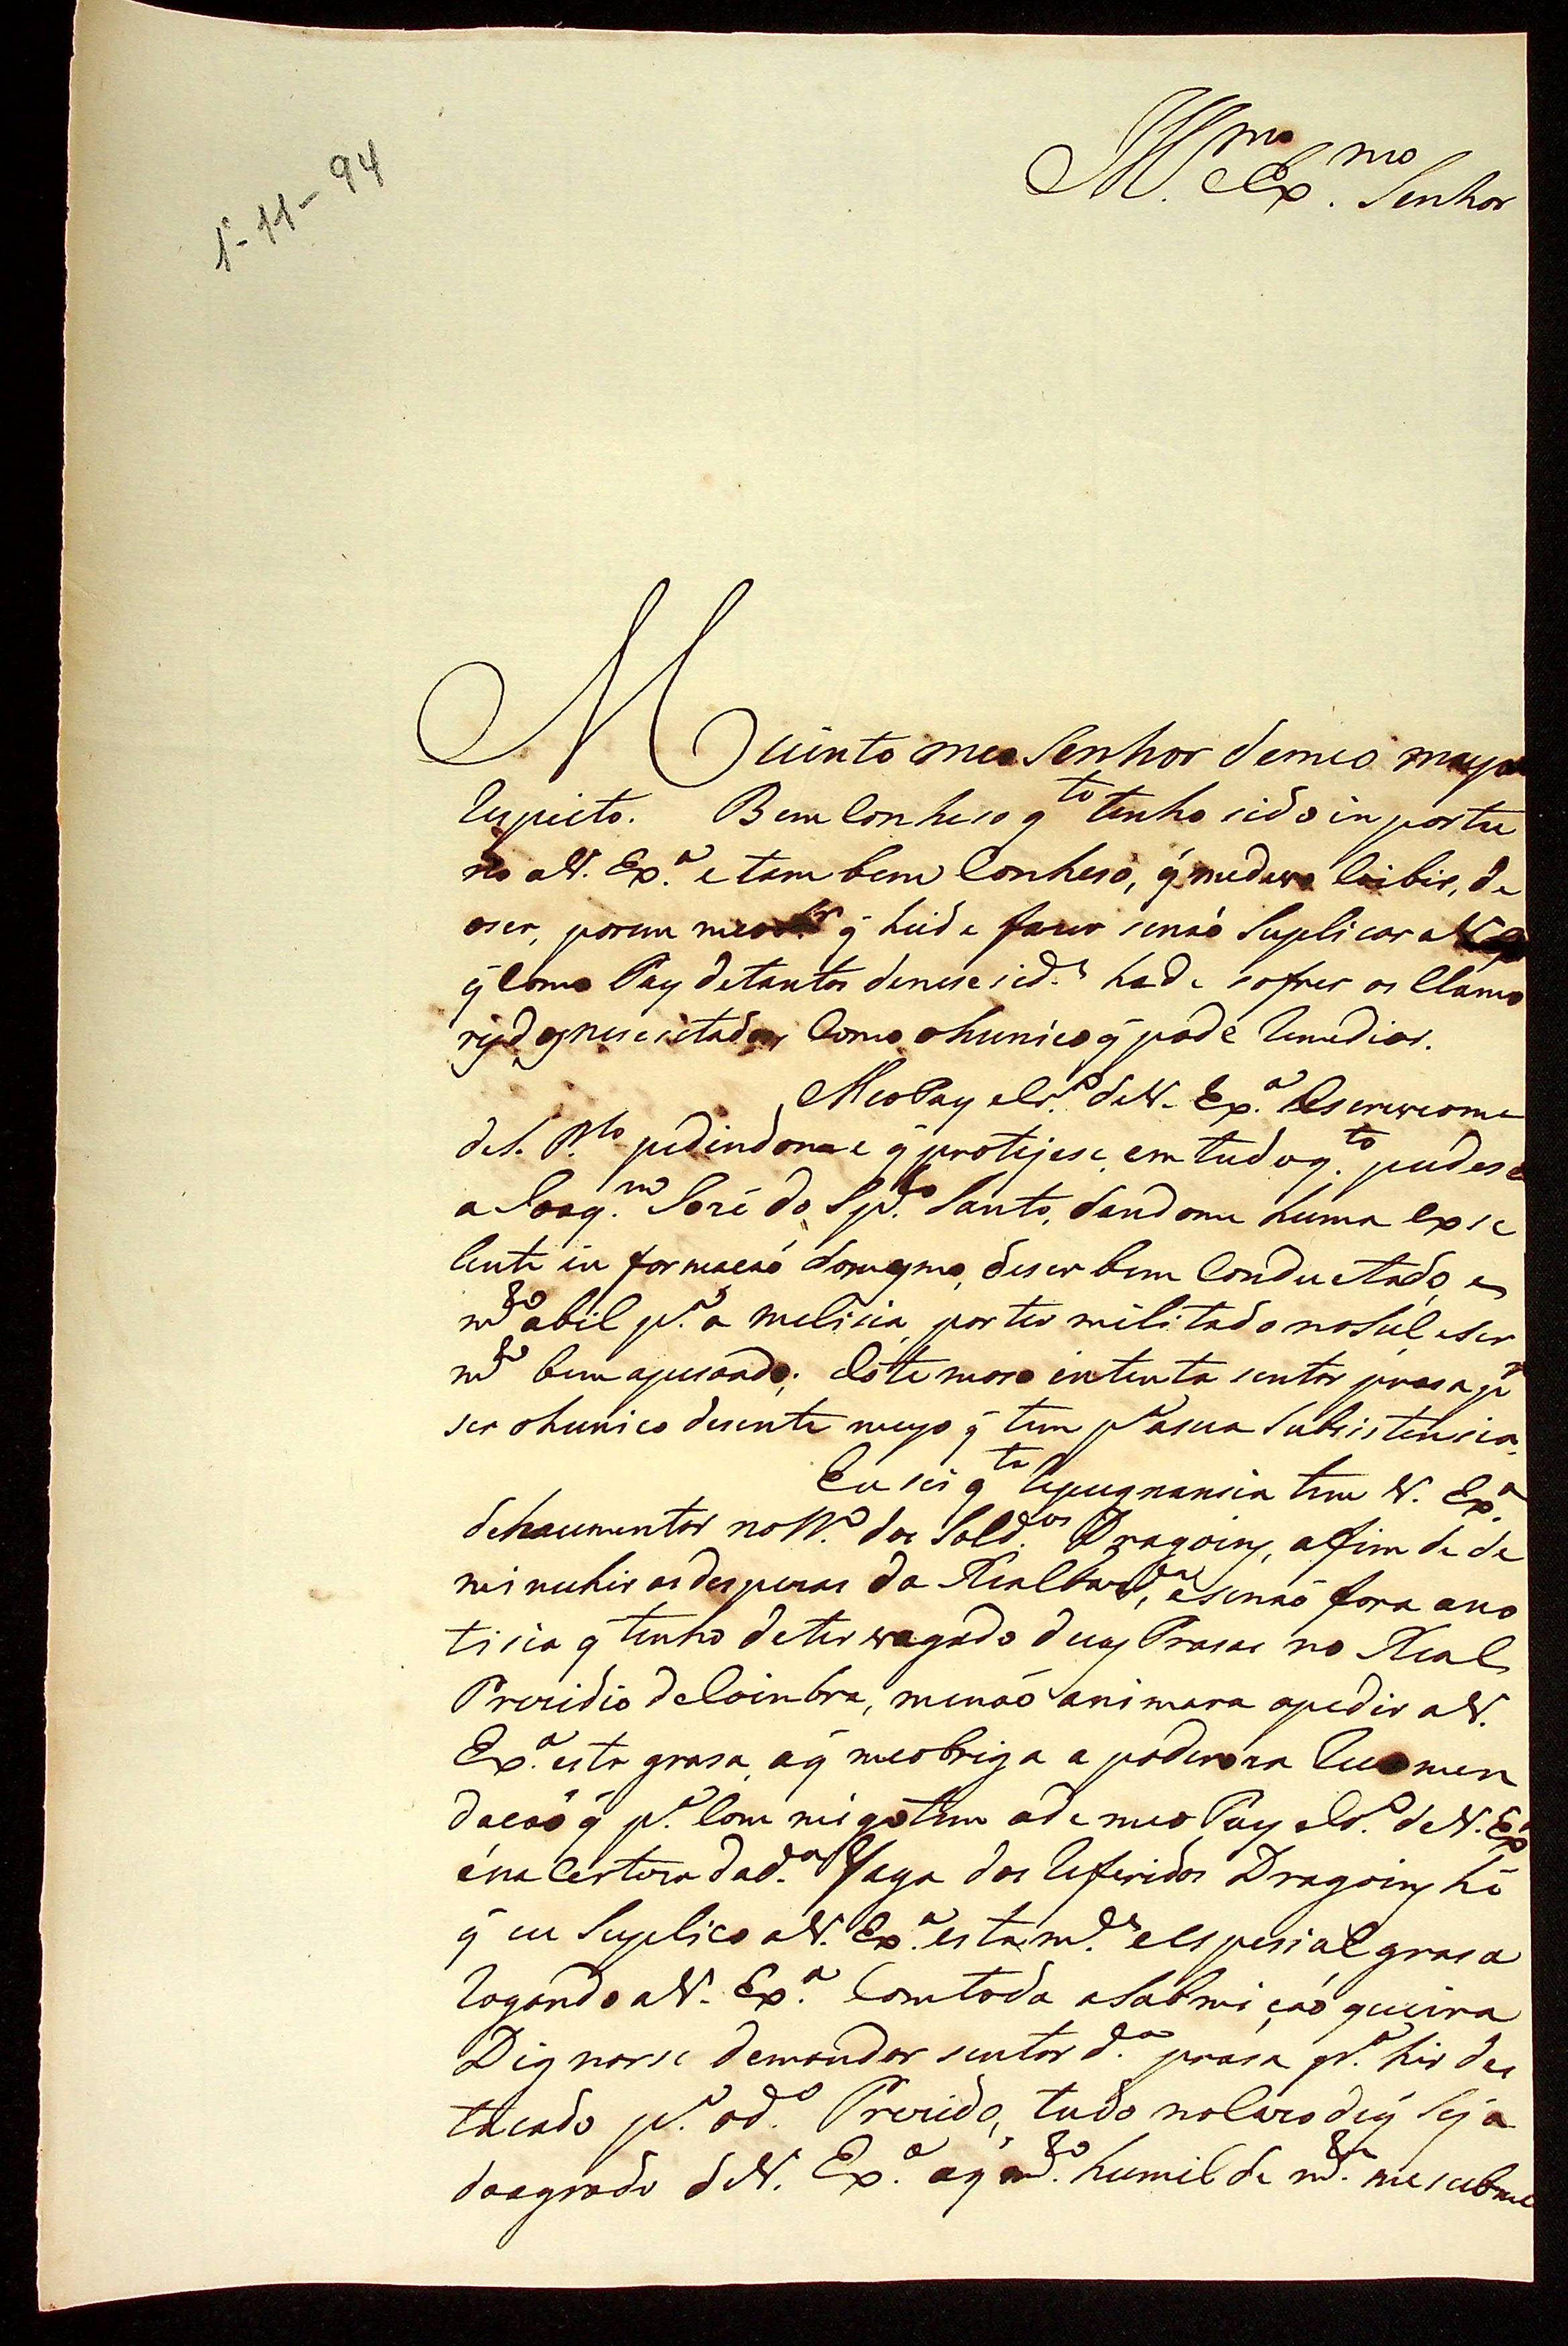 1º-11-94
Ill.mo Ex.mo Senhor
Muinto meo Senhor demeo mayor
Respeito. Bem Conheso q.to tenho sido inportu
no aV. Ex.ª e tam bem Conheso, q̃ medevo Coibir, de
oser, porem meo Sr q̃ heide fazer senaõ Suplicar aV Ex
q̃ Como Pay detantos denesesid.s hade sofrer os Clamo
res dos nesesitados Como ohunico q̃ pode Remediar.
Meo Pay e Cr.º deV. Ex.ª Escreveome
deS. P.lo pedindome q̃ protejese, em tudo q.to pudese
a Joaq.m José do Sp.to Santo, dandome huma exse
lente in formacaõ domesmo, deser bem Conductado, e
m.to abil p.ª a melisia, porter militado noSul, eser
m.to bem apesoado; Este moso intenta sentar prasa p.r
ser ohunico desente meyo q̃ tem p.ª asua Subsistensia.
Eu sei q.ta Repugnansia tem V. Ex.ª
dehaumentar no N.º dos Sold.os Dragoins, afim de de
minuhir as despezas da Real Faz.da, esenaõ fora ano
tisia q̃ tenho deter vagado duas Prasas no Real
Prezidio deCoinbra, menaõ animara apedir aV.
Ex.ª esta grasa, aq̃ meobriga a poderoza Recomen
dacaõ q̃ p.ª Com migo tem ade meo Pay e Cr.º deV. Ex.ª
éna Certeza dad.ª Vaga dos Referidos Dragoins hé
q̃ eu Suplico aV. Ex.ª esta m.ce e Espesial grasa
Rogando aV. Ex.ª Comtoda aSubmiçaõ queira
Dignarse demandar sentar d.ª prasa p.ª hir des
tacado p.ª od.º Prezido, tudo noCazo deq̃ Seja
doagrado deV. Ex.ª aq̃ m.to humilde m.te mesubme